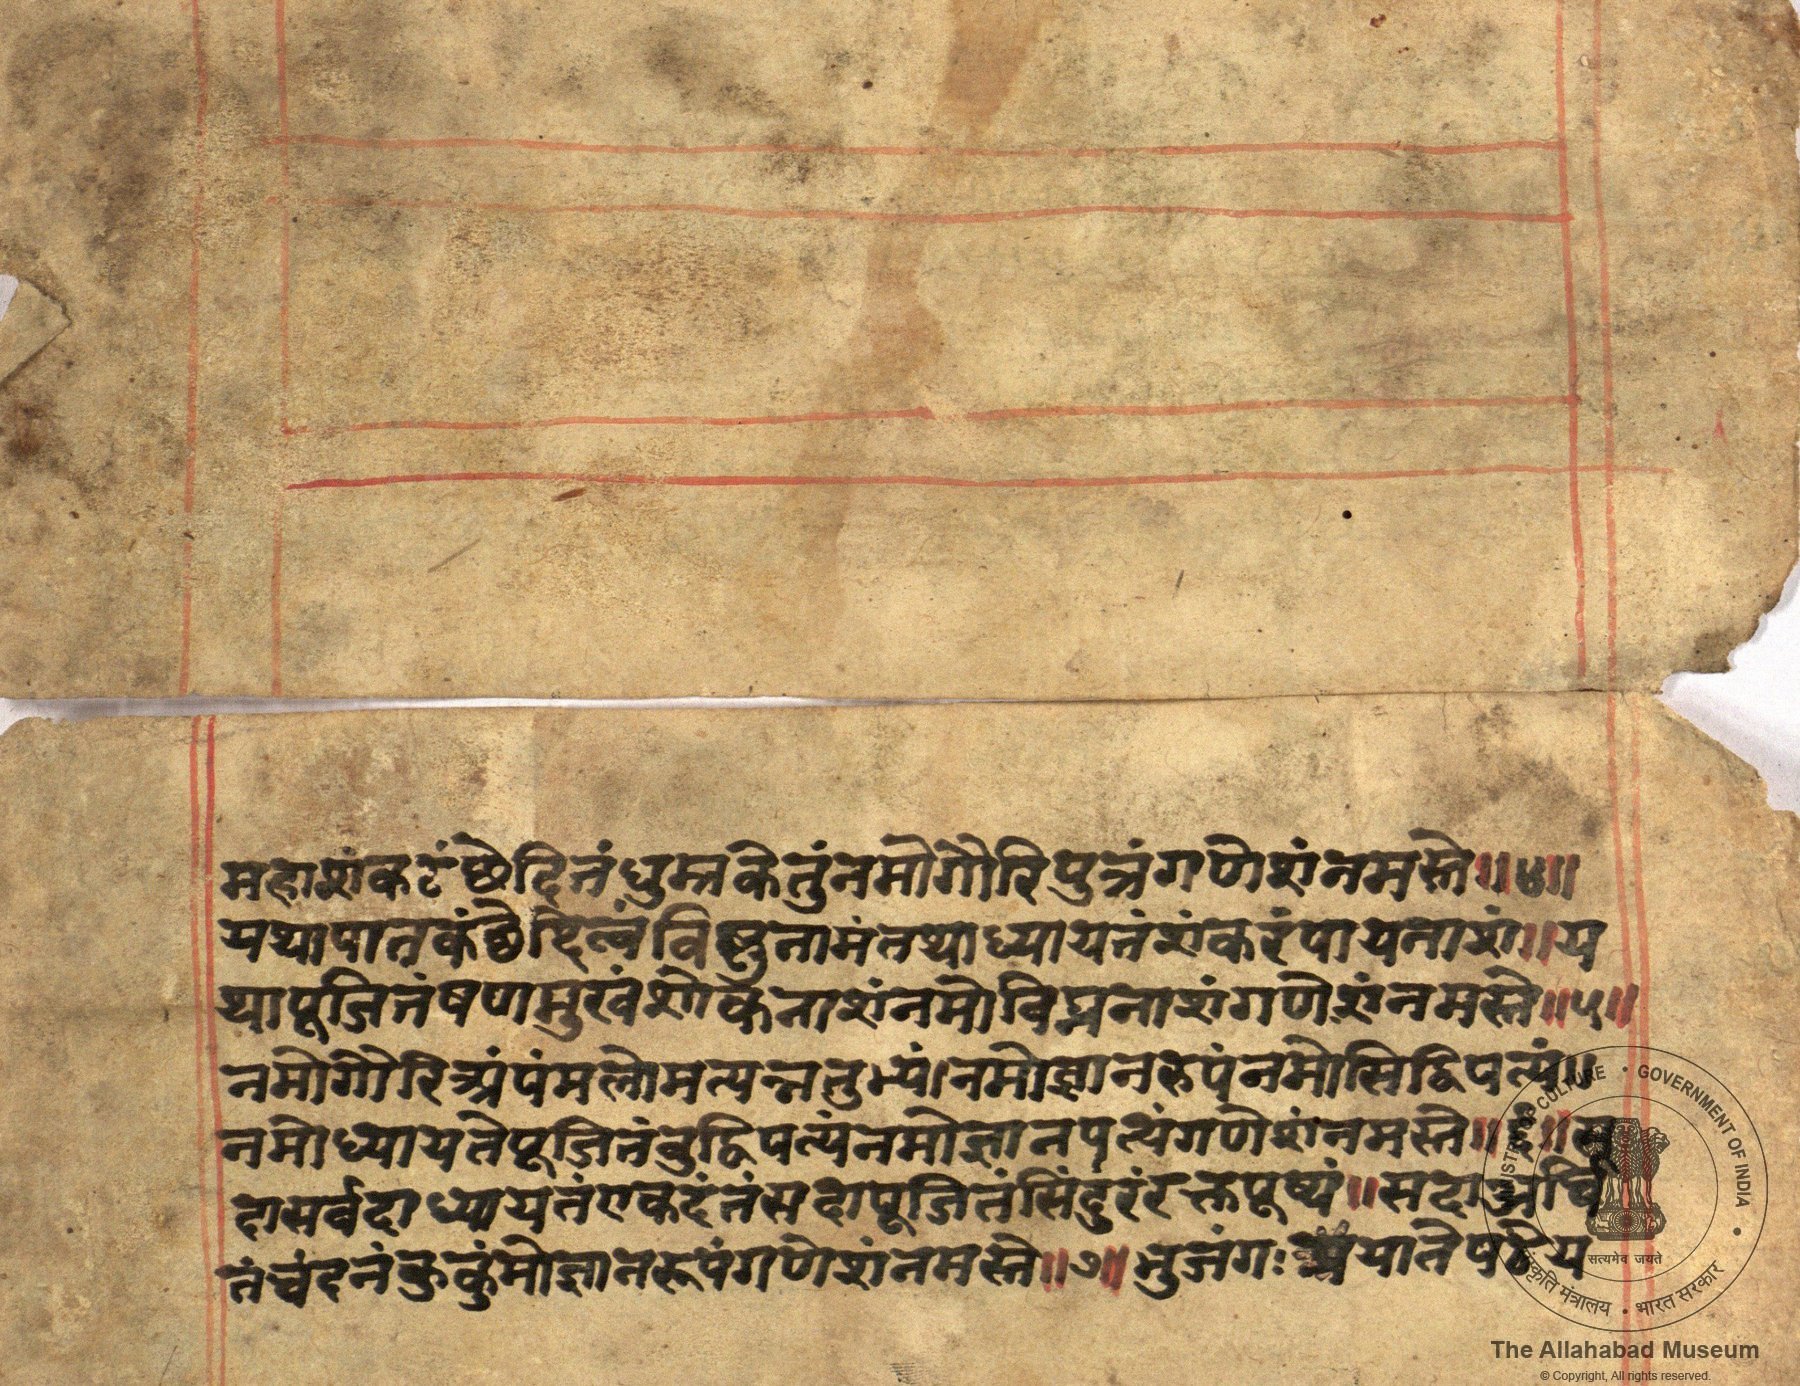 महाशंकष्टंछेदिनंधुम्नकेतुंनमोगौरिपुत्रंगणेशंनमस्ते॥४॥
यथापातकंछेदित्वंविष्णुनामंतथाध्यायतंशंकरंपापनाशं॥य
थापूजितंषण्मुखंशोकनाशंनमोविघ्ननाशंगणेशंनमस्ते॥५॥
नमोगौरि पंमलो तुभ्यं।नमोज्ञानरूपंनमोसिद्धिपत्यं॥
नमोध्यायतेपूजितंवुद्धिपत्यंनमोज्ञानपत्यंगणेशंनमस्ते॥६॥
हासर्वदाध्यायतंएकदंतंसदापूजितंसिंदुरंरक्तपूष्पं॥सदाअर्चि
तंचंदनंकुकुंमोज्ञानरूपंगणेशंनमस्ते॥७॥भुजंगःप्रयातेपठेय
MINISTRY OF CULTURE • GOVERNMENT OF INDIA •
सत्यमेव जयते
संस्कृति मंत्रालय • भारत सरकार
The Allahabad Museum
© Copyright, All rights reserved.